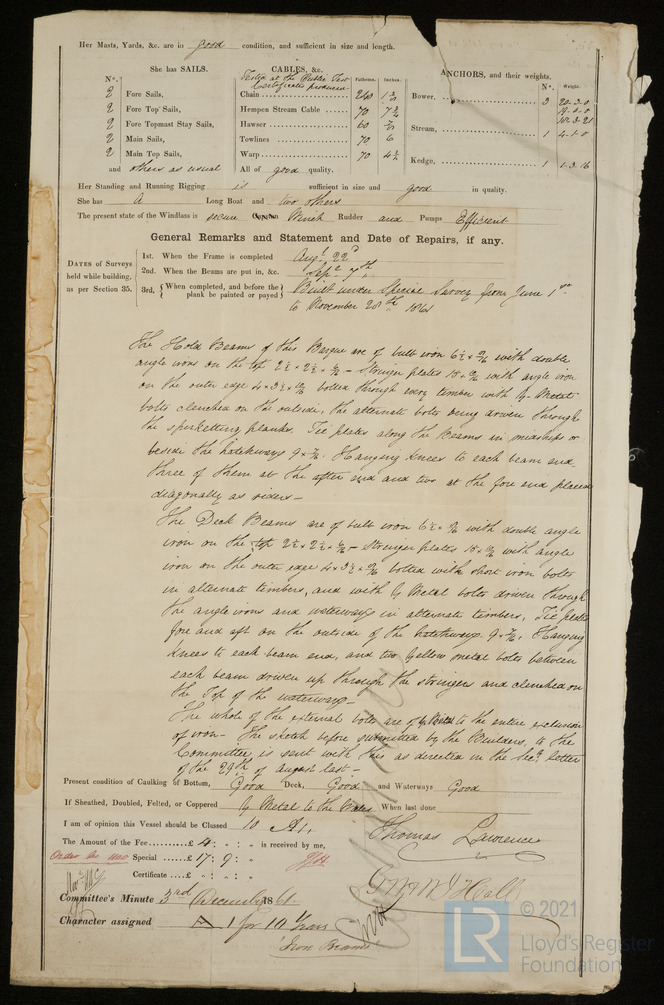 Her Masts, Yards, &c. are in good condition, and sufficient in size and length.
She has SAILS.
CABLES, &c.
ANCHORS, and their weights.
N°.
Tested at the Public Test
Certificates produced
Fathoms.
Inches.
N°.
Weight.
2 Fore Sails,
2 Fore Top Sails,
2 Fore Topmast Stay Sails,
2 Main Sails,
2 Main Top Sails,
and others as usual
Chain 240
Hempen Stream Cable 70
Hawser 60
Towlines 70 6
Warp 70 4½
All of good quality.
Bower, 3 20.3.0
18.3.21
Stream, 1 4.1.0
Kedge, 1 1.3.16
Her Standing and Running Rigging is sufficient in size and good in quality.
She has A Long Boat and two others
The present state of the Windlass is secure Winch Rudder and Pumps Efficient
General Remarks and Statement and Date of Repairs, if any.
DATES of Surveys
held while building,
as per Section 35.
1st. When the Frame is completed Augt 22d
2nd. When the Beams are put in, &c. Sepr 7th
3rd, { When completed, and before the plank be painted or payed } Built under Special Survey from June 1st
to November 28th 1861
The Hold Beams of this Barque are of bulb iron 6½ × 9/16 with double
angle irons on the top 2½ × 2½ × Stringer plates 18 × with angle iron
on the outer edge 4 × 3½ × bolted through every timber with Y. Metal
bolts clenched on the outside, the alternate bolts being driven through
the spirketting planks. Tie plates along the Beams in midships or
beside the hatchways 9 × Hanging knees to each beam end,
three of them at the after end and two at the fore end placed
diagonally as riders –
The Deck Beams are of bulb iron 6½ × with double angle
iron on the top 2½ × 2½ × – Stringer plates 18 × with angle
iron on the outer edge 4 × 3½ × bolted with short iron bolts
in alternate timbers, and with Y Metal bolts driven through
the angle irons and waterways in alternate timbers, Tie plates
fore and aft on the outside of the hatchways 9 × Hanging
knees to each beam end, and two Yellow metal bolts between
each beam driven up through the stringers and clenched on
the Top of the waterways –
The whole of the external bolts are of Y Metal to the entire exclusion
of iron – The sketch before submitted by the Builders, to the
Committee, is sent with this as directed in the Secy letter
of the 29th of August last –
Present condition of Caulking of Bottom, Good Deck, Good and Waterways Good
If Sheathed, Doubled, Felted, or Coppered Y Metal to the Wales When last done
I am of opinion this Vessel should be Classed 10 A1,
Thomas Lawrence
The Amount of the Fee......£ 4 : „ : „ is received by me,
Special ......£ 17 : 9 : „
Certificate ....£ „ : „ : „
Committee's Minute 3rd December 1861.
Character assigned A 1 for 10 Years
Iron Beams
© 2021
LR
Lloyd's Register
Foundation